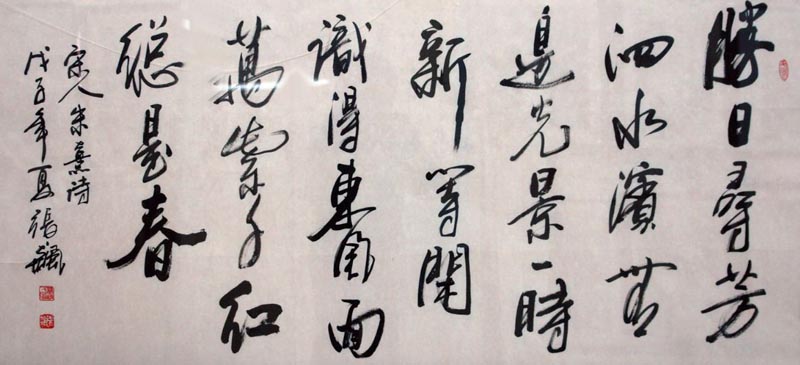 勝日尋芳
泗水濱無
邊光景一時
新等閒
識得東風面
萬紫千紅
總是春
宋人朱熹詩
戊子年夏張飆